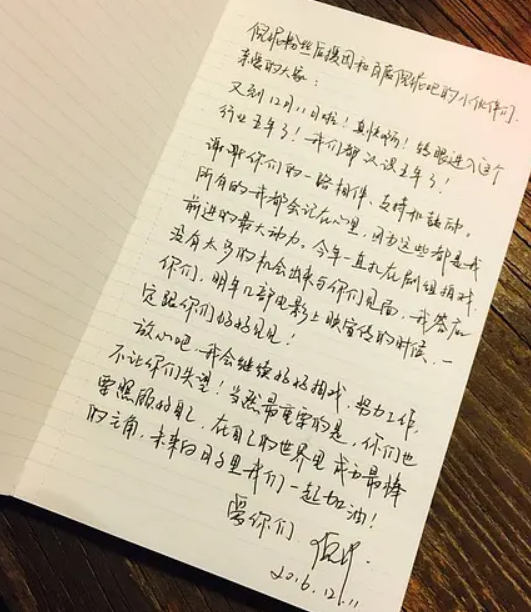 倪妮粉丝后援团和百度倪妮吧的小伙伴们.
亲爱的大家:
又到12月11日啦!真快啊!转眼进入这个
行业五年了!我们都认识五年了!
谢谢你们的一路相伴、支持和鼓励。
所有的一切都会记在心里,因为这些都是我
前进的最大动力。今年一直扎在剧组拍戏.
没有太多的机会出来与你们见面,我答应
你们,明年几部电影上映宣传的时候,一
定跟你们好好见见!
放心吧.我会继续好好拍戏.努力工作,
不让你们失望!当然最重要的是,你们也
要照顾好自己,在自己的世界里成为最棒
的主角,未来的日子里我们一起加油!
爱你们.倪妮.
2016.12.11